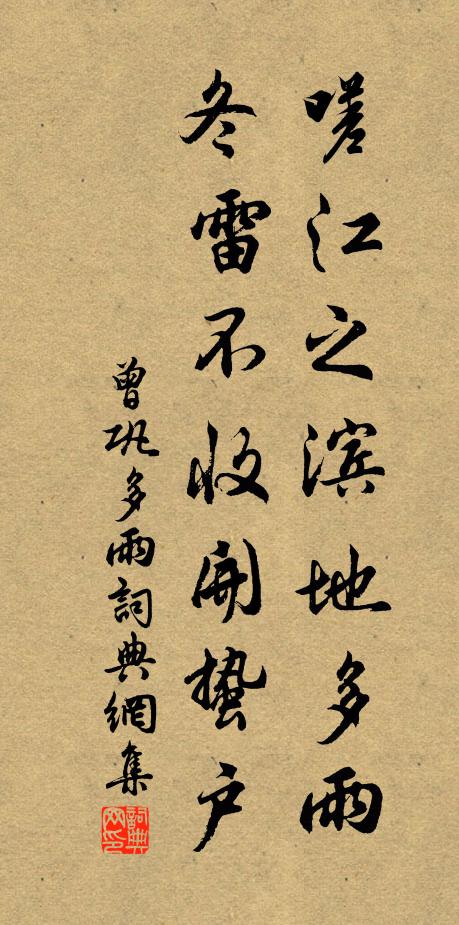 嗟江之滨地多雨
冬雷不收開蟄户
曾巩多雨詞典網集
詞典
网印